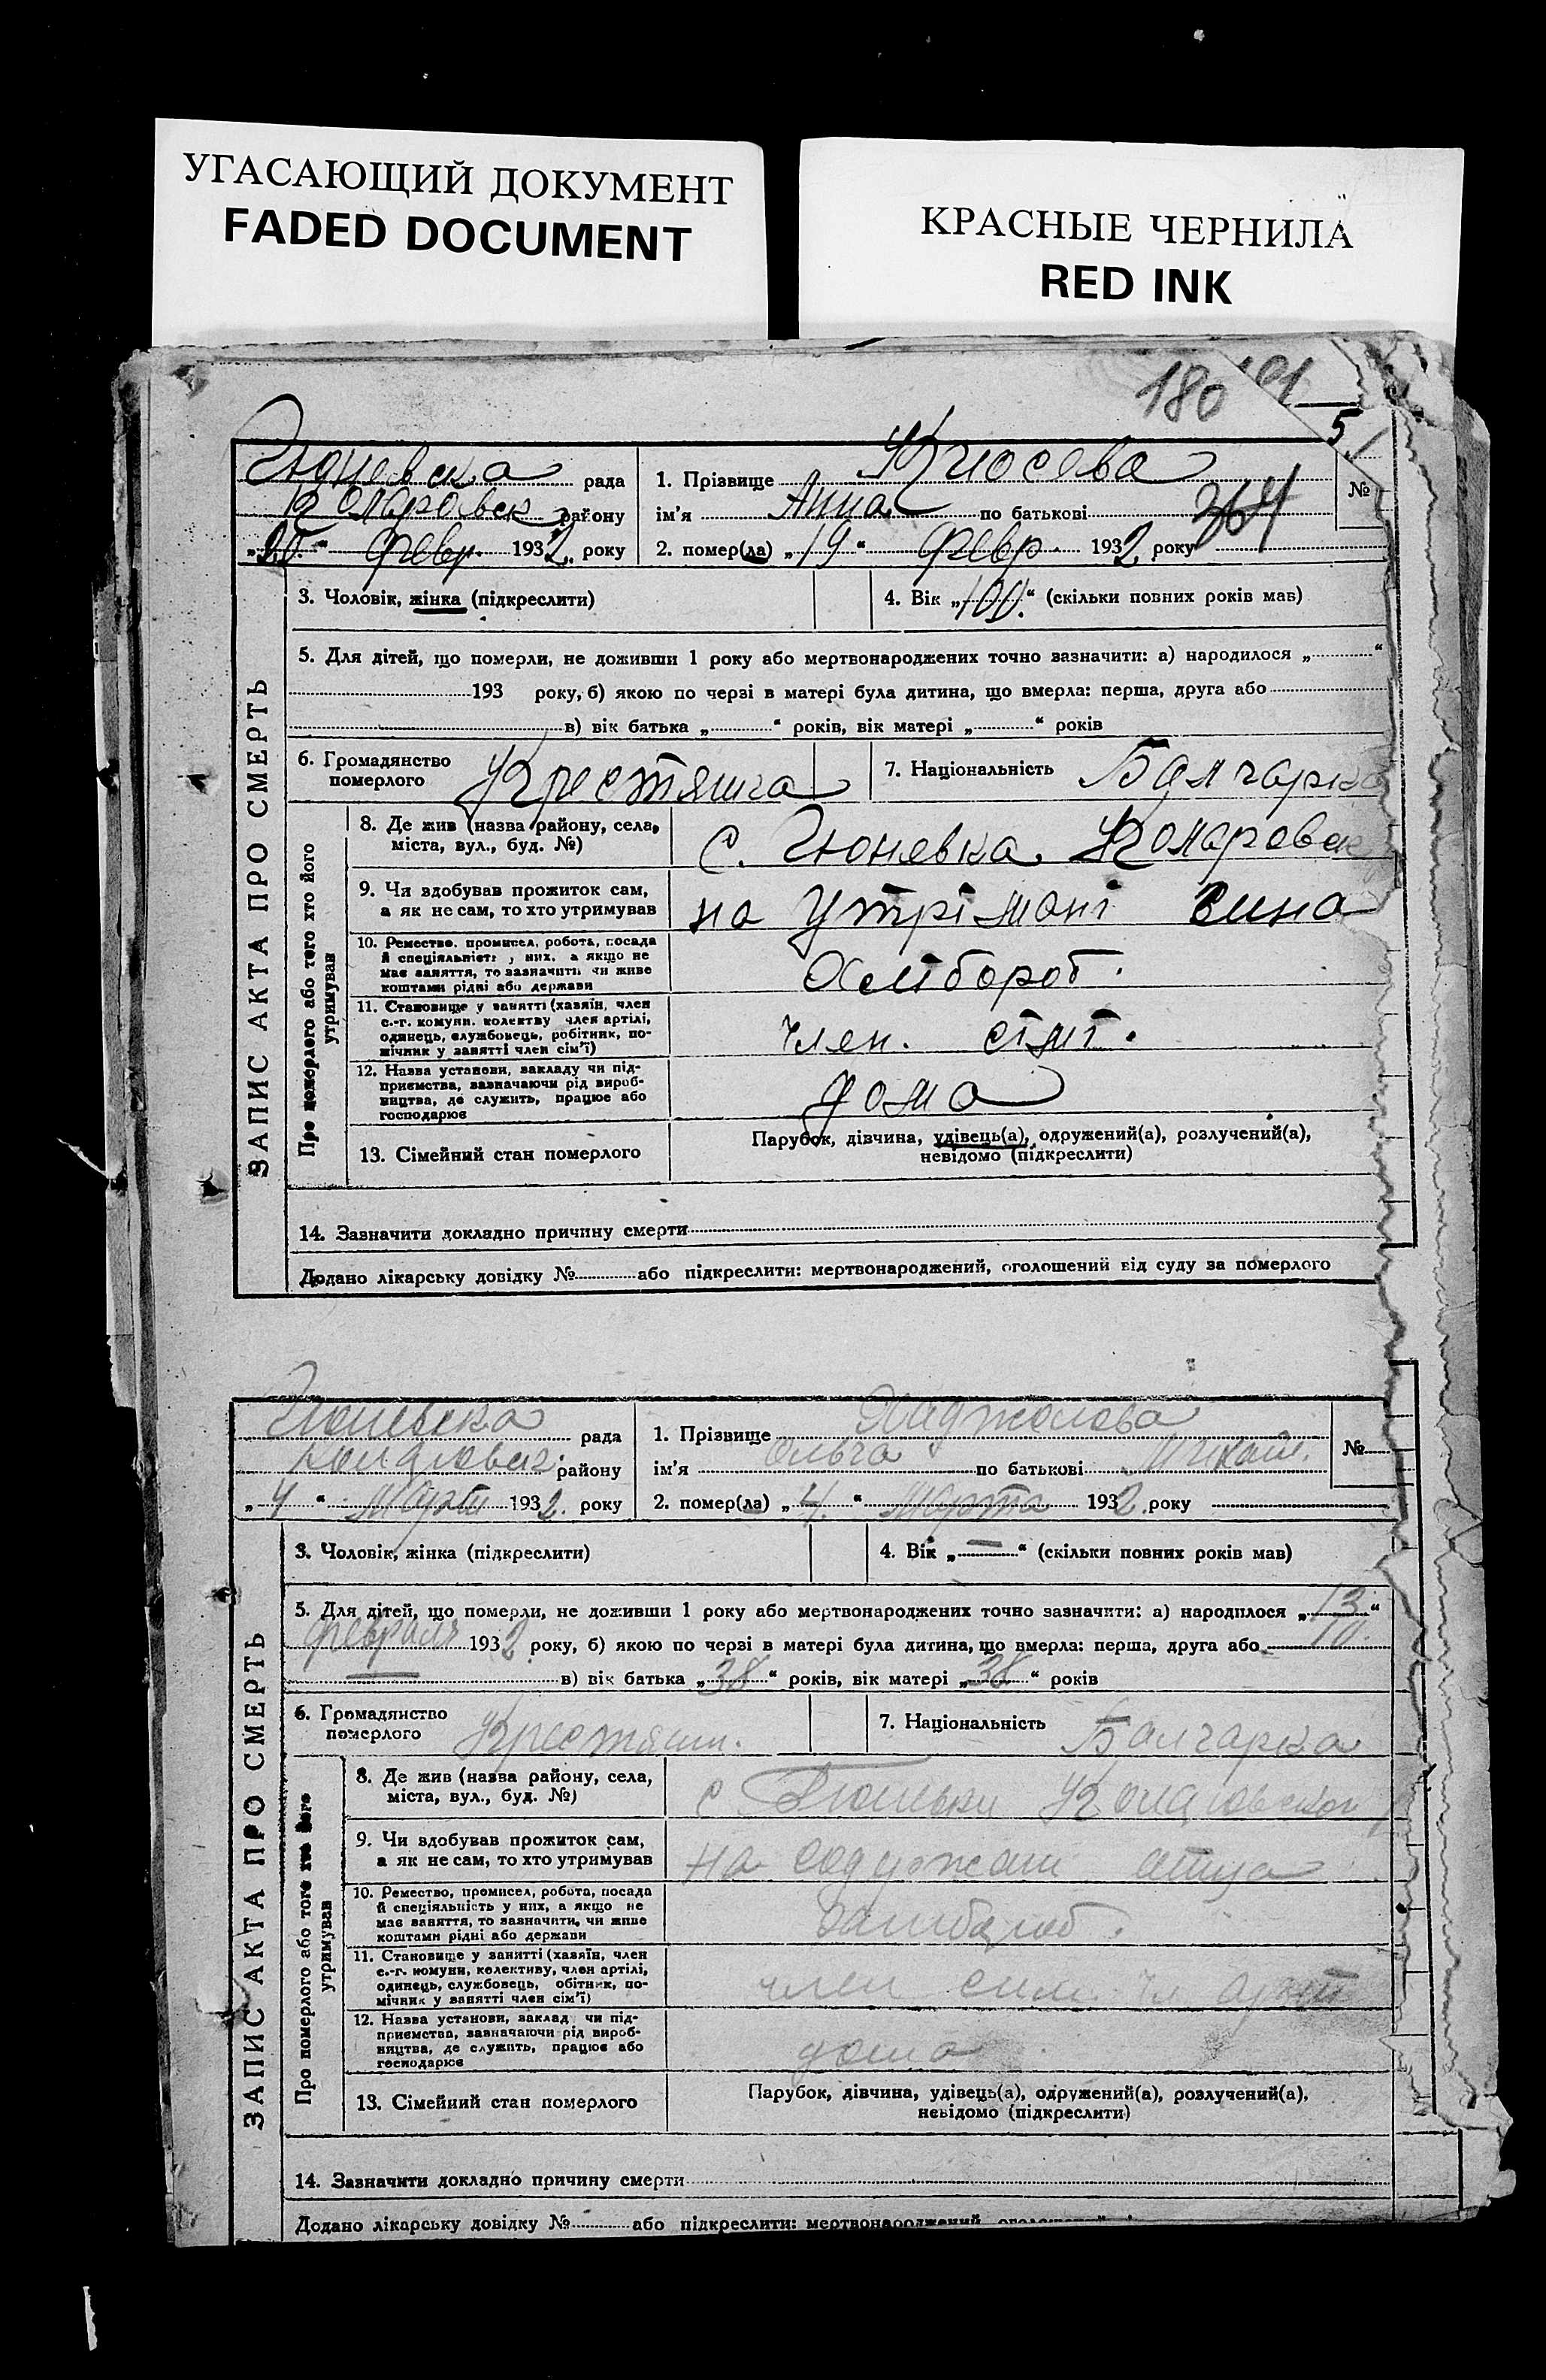 УГАСАЮЩИЙ ДОКУМЕНТ
FADED DOCUMENT
КРАСНЫЕ ЧЕРНИЛА
RED INK
180
5
ЗАПИС АКТА ПРО СМЕРТЬ
Гюневска рада
Коларовск району
„20“ февр. 1932. року
1. Прізвище Кюсева
№
ім'я Анна по батькові
364
2. помер(ла) „19“ февр. 1932 року
3. Чоловік, жінка (підкреслити)
4. Вік „100.“ (скільки повних років мав)
5. Для дітей, що померли, не доживши 1 року або мертвонароджених точно зазначити: а) народилося „ “
193 року, б) якою по черзі в матері була дитина, що вмерла: перша, друга або
в) вік батька „ “ років, вік матері „ “ років
6. Громадянство померлого
7. Національність Балгарка
Про померлого або того хто його утримував
8. Де жив (назва району, села,
міста, вул., буд. №)
с. Гюневка. Коларовск
9. Чи здобував прожиток сам,
а як не сам, то хто утримував
на утрімані сина
10. Ремество, промисел, робота, посада
й спеціяльність у них, а якщо не
має заняття, то зазначити чи живе
коштами рідні або держави
Хлібороб.
11. Становище у занятті (хазяїн, член
с.-г. комуни, колективу член артілі,
одинець, службовець, робітник, по-
мічник у занятті член сім'ї)
член. сімї.
12. Назва установи, закладу чи під-
приємства, зазначаючи рід вироб-
ництва, де служить, працює або
господарює
дома
13. Сімейний стан померлого
Парубок, дівчина, удівець(а), одружений(а), розлучений(а),
невідомо (підкреслити)
14. Зазначити докладно причину смерти
Додано лікарську довідку № або підкреслити: мертвонароджений, оголошений від суду за померлого
ЗАПИС АКТА ПРО СМЕРТЬ
Гюневска рада
району
„4“ Марта 1932. року
1. Прізвище Хаджиолова
№
ім'я Ольга по батькові Михайл.
2. помер(ла) „4.“ Марта 1932. року
3. Чоловік, жінка (підкреслити)
4. Вік „—“ (скільки повних років мав)
5. Для дітей, що померли, не доживши 1 року або мертвонароджених точно зазначити: а) народилося „13“
февраля 1932 року, б) якою по черзі в матері була дитина, що вмерла: перша, друга або 10.
— в) вік батька „38“ років, вік матері „38“ років
6. Громадянство померлого
7. Національність Балгарка
Про померлого або того хто його утримував
8. Де жив (назва району, села,
міста, вул., буд. №)
с Гюневки Коларовског
9. Чи здобував прожиток сам,
а як не сам, то хто утримував
на отца
10. Ремество, промисел, робота, посада
й спеціяльність у них, а якщо не
має заняття, то зазначити, чи живе
коштами рідні або держави
11. Становище у занятті (хазяїн, член
с.-г. комуни, колективу, член артілі,
одинець, службовець, обітник, по-
мічник у занятті член сім'ї)
член
12. Назва установи, заклад чи під-
приємства, зазначаючи рід вироб-
ництва, де служить, працює або
господарює
дома
13. Сімейний стан померлого
Парубок, дівчина, удівець(а), одружений(а), розлучений(а),
невідомо (підкреслити)
14. Зазначити докладно причину смерти
Додано лікарську довідку № або підкреслити: мертвонароджений